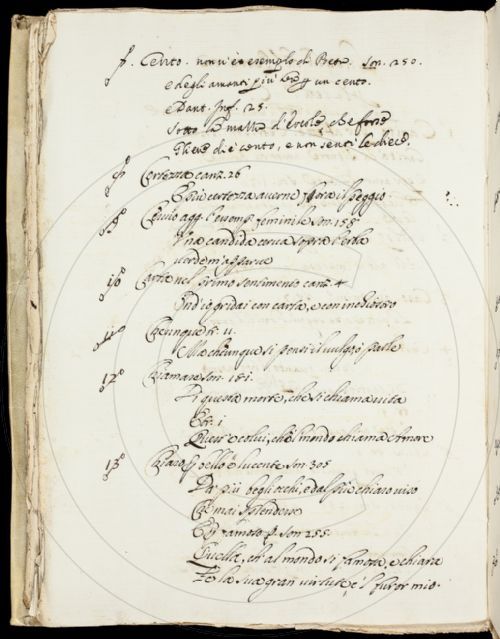 7º. Cento. non vi è esempio di Petr. Son. 250.
e degli amanti più ben per un cento.
e Dant. Inf. 25.
Sotto la mazza d'Ercole che forse
Gliene diè cento, e non sentì le diece.
8º Certezza canz. 26
E più certezza averne fora il peggio
9º Cervio agg. l'essemp. feminile son. 158
Una candida cerva sopra l'erba
verde m'apparve
10º Carta nel primo sentimento canz. 4
Ond'io gridai con carta, e con inchiostro
11º Chiunque Tr. 11.
Ma chiunque si pensi il vulgo, o parle
12º Chiamare son. 181.
Di questa morte, che si chiama vita
Tr. 1
Quest'è colui, che 'l mondo chiama Amore
13º Chiaro per bello e lucente son. 305
Da più begli occhi, e dal più chiaro viso
Che mai splendesse
E per famoso p. son 255
Quella, ch'al mondo sì famosa, e chiara
Fe la sua gran virtute, e 'l furor mio.